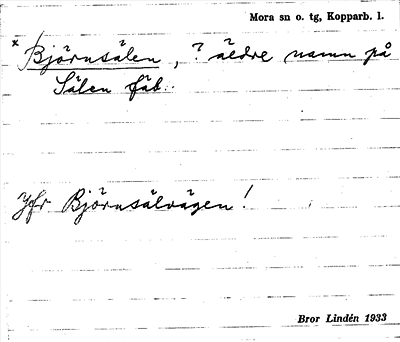 Mora sn o. tg, Kopparb. l.
× Björnsälen, ? äldre namn på
Sälen fäb.
Jfr Björnsälvägen!
Bror Lindén 1933